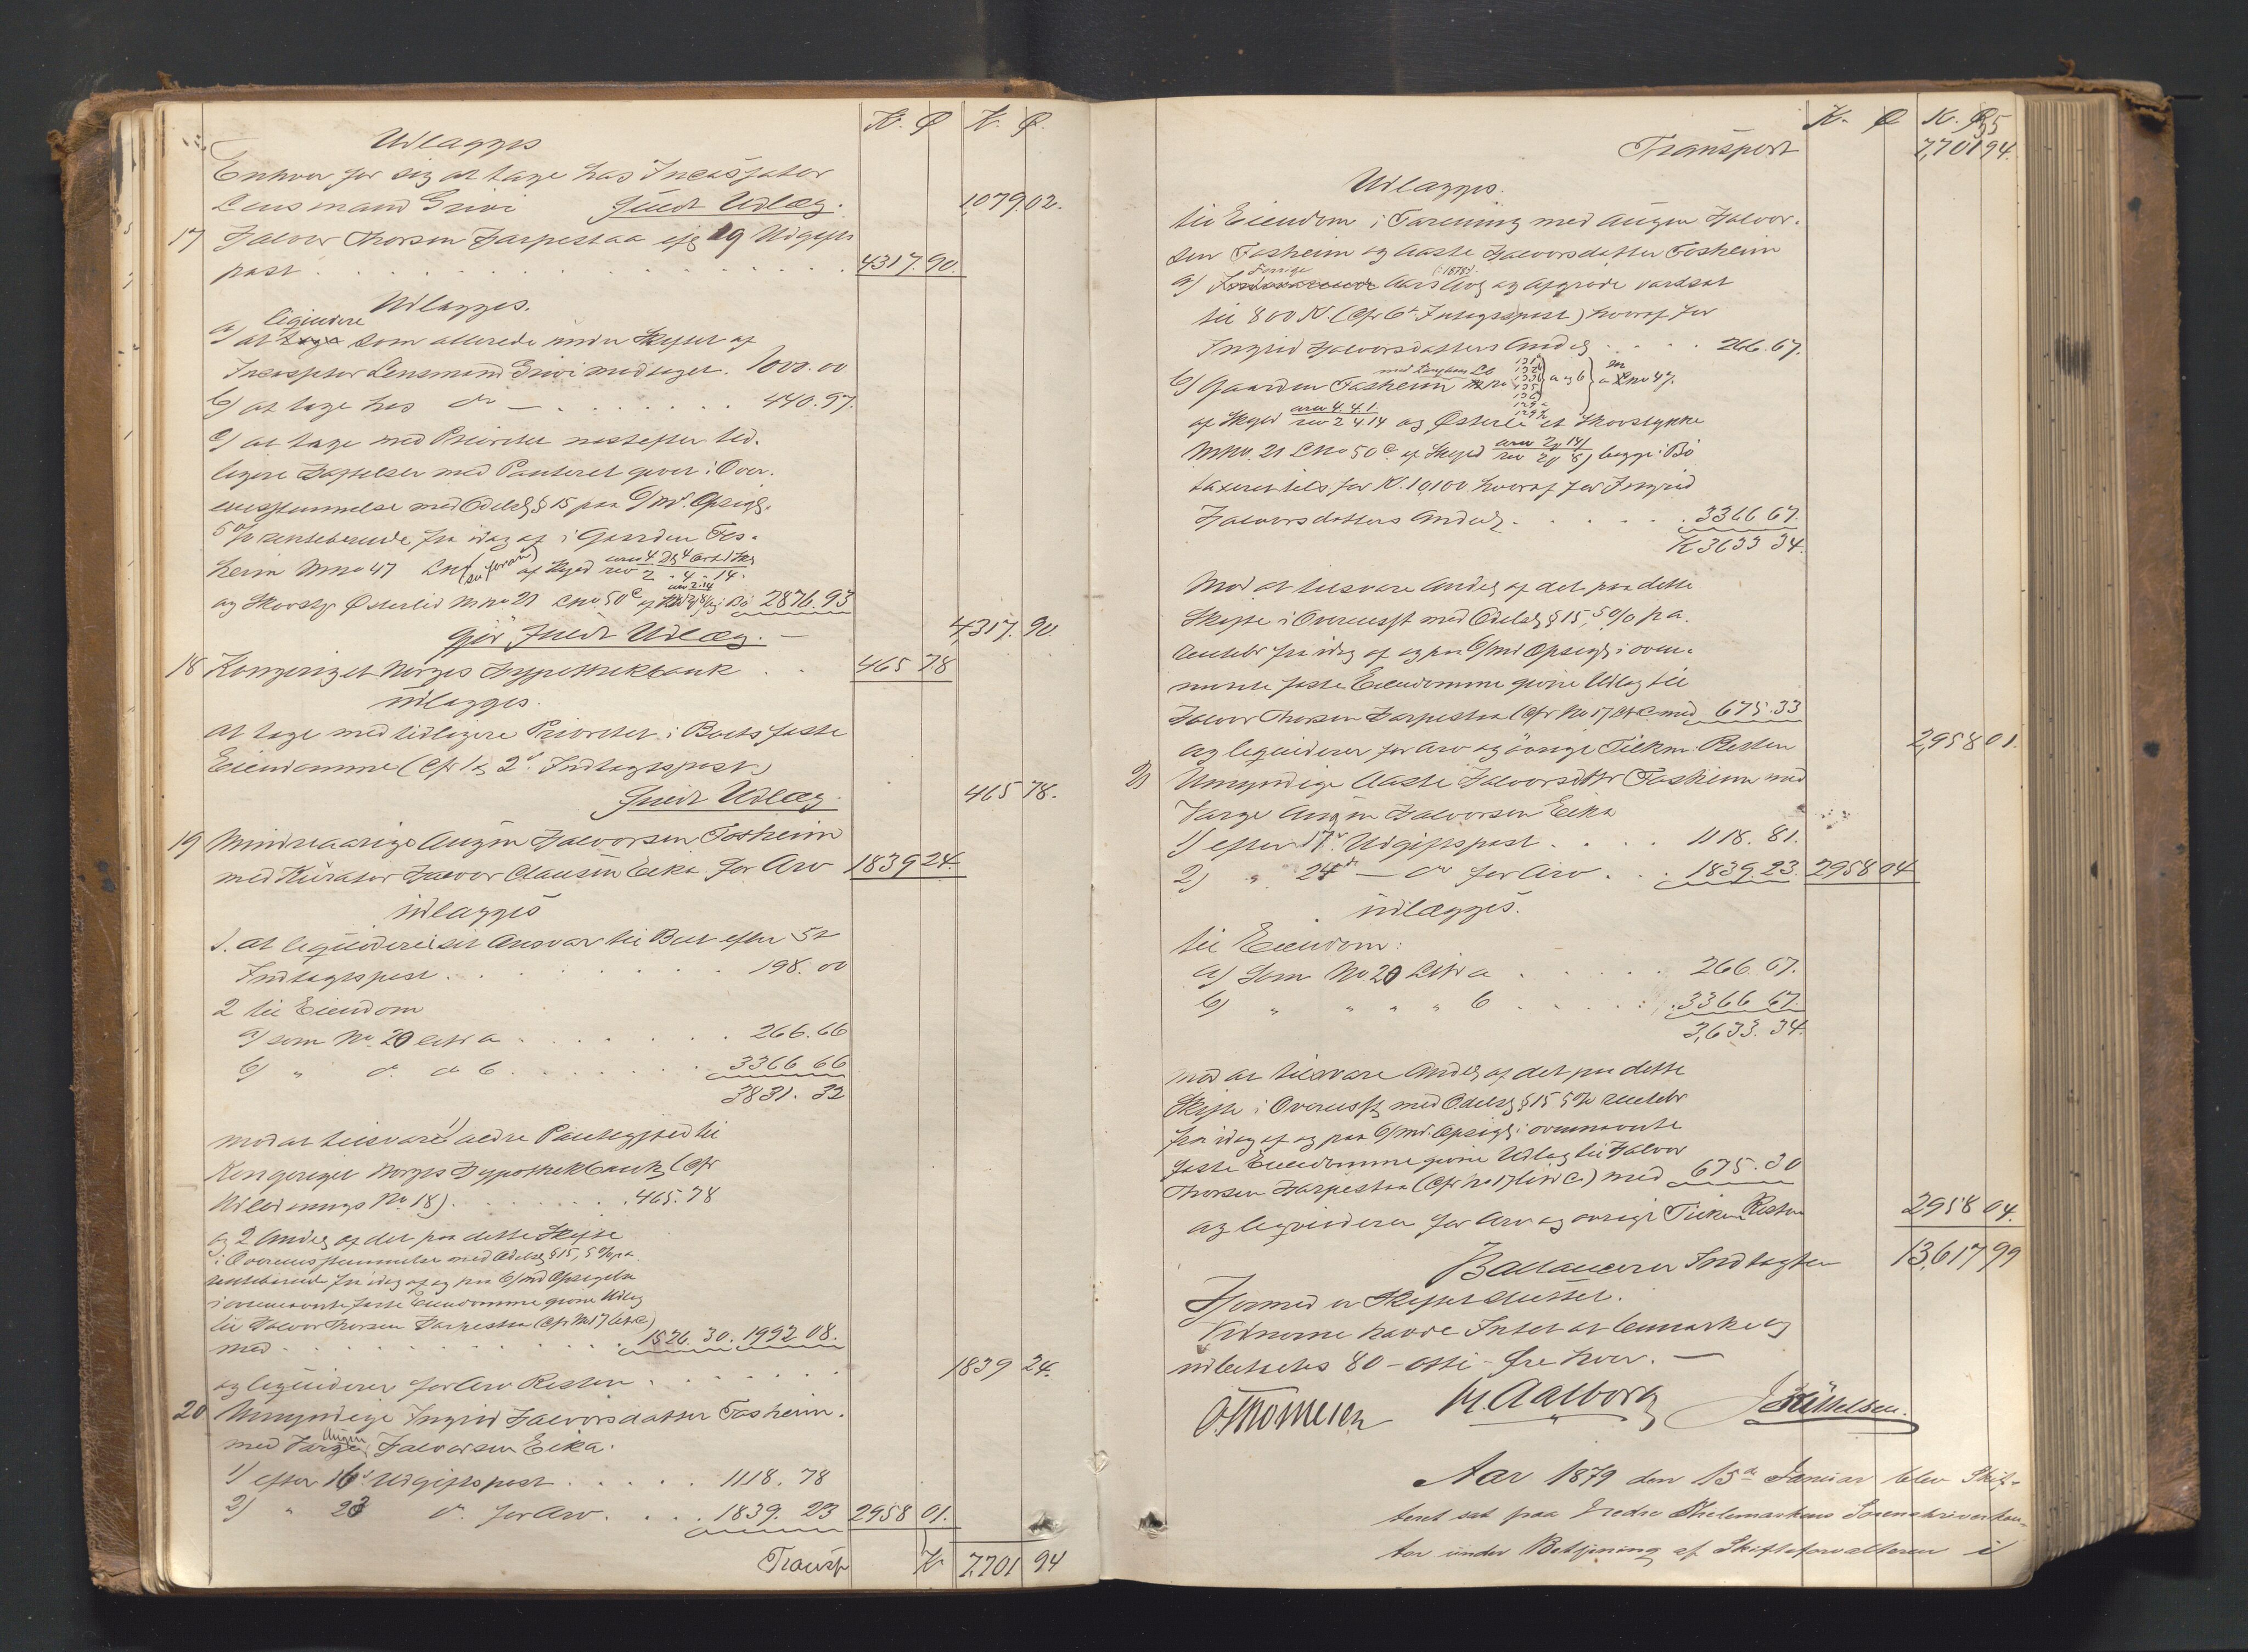 K. Ø K. Ø.
Udlægges
Enhver for sig at tage hos Incassator
Lensmand Grivi fuldt Udlæg. 1,079.02.
17 Halvor Thorsen Harpestaa 19 Udgifts
post . . . 4317.90.
Udlægges.
a) at liqvidere som allerede under Skiftet af
Incassator Lensmand Grivi modtaget. 1000.00
b) at tage hos do — . . . 440.97.
c) at tage med Prioritet næstefter tid-
ligere Hæftelser med Panteret given i Over-
eensstemmelse med Odelsl § 15 paa 6/md. Opsigl.
5 % rentebærende fra idag af i Gaarden Fos-
heim Mno 47 Lno (se foran) af Skyld rev 2 - 4 - 14.
og Skovst. Østerlid Mno 21 Lno 50 c af i Bø 2876.93
gjør fuldt Udlæg. — 4,317.90.
18 Kongeriget Norges Hypothekbank . . 465 78
udlægges.
at tage med tidligere Prioritet i Boets faste
Eiendomme (Cfr 1 og 2d Indtægtspost)
fuldt Udlæg. 465 78.
19 Mindreaarige Augun Halvorsen Fosheim
med Kurator Halvor Clausen Eika for Arv 1839 24.
udlægges
1. at liqvidere i sit Ansvar til Boet efter 5t
Indtægtspost . . . 198.00
2 til Eiendom
a) som No. 20 litr a . . . 266.66
b) " do do b . . . 3366 66
3831.32
mod at tilsvare 1) ældre Pantegjæld til
Kongeriget Norges Hypothekbank (Cfr
Udlodnings No 18) . . . 465.78
og 2 Andel af det paa dette Skifte
i Overensstemmelse med Odelsl § 15, 5 % pa
rentebærende fra idag af og paa 6/md Opsigelse
i ovennævnte faste Eiendomme givne Udlæg
til Halvor Thorsen Harpestaa (Cfr No 17 litr c)
med . . . 1526.30. 1992 08.
og liqviderer for Arv Resten . . . 1839 24.
20 Umyndige Ingrid Halvorsdatter Fosheim.
med Værge Augun Halvorsen Eika.
1) efter 16d Udgiftspost . . . 1118.78
2) " 23 do for Arv . . . 1839.23 2958 01.
Transp K 7,701 94
K. Ø K. Ø
Transport 7,701 94.
Udlægges.
til Eiendom i Forening med Augun Halvor-
sen Fosheim og Aaste Halvorsdatter Fosheim
a) Forrige Aars (1878) Avl og Afgrøde værdsat
til 800 K. (Cfr 6t Indtægtspost) hvoraf for
Ingrid Halvorsdatters Andel . . . 266.67.
b) Gaarden Fosheim a og b Lno 47.
af Skyld rev 2 4.14 og Østerli et Skovstykke
Mno. 21 Lno 50 c af Skyld begge i Bø
taxeret tils for K. 10,100 hvoraf for Ingrid
Halvorsdatters Andel . . . 3366 67.
K 3633 34.
Mod at tilsvare Andel af det paa dette
Skifte i Overensst med Odelsl § 15, 5 % pa.
rentebr fra idag af og paa 6/md Opsigl i oven-
nævnte faste Eiendomme givne Udlæg til
Halvor Thorsen Harpestaa (Cfr No 17 litr c med 675.33
og liqviderer for Arv og øvrige Tilkm. Resten 2,958 01.
Umyndige Aaste Halvorsdtr Fosheim med
Værge Augun Halvorsen Eika
1) efter 17d Udgiftspost . . . 1118.81.
2) " 24d — do for Arv . . . 1839.23. 2958 04
udlægges.
til Eiendom:
a) Som No 20 Litr a . . . 266.67.
b) " " " " b . . . 3366 67.
3,633.34.
mod at tilsvare Andel af det paa dette
Skifte i Overensst med Odelsl § 15 5 % rentebr
fra idag af og paa 6/md. Opsigl i ovennævnte
faste Eiendomme givne Udlæg til Halvor
Thorsen Harpestaa (Cfr No 17 litr c) med 675.30
og liqviderer for Arv og øvrige Tilkm Resten 2958 04.
Ballancerer Indtægten 13,617 99
Hermed er Skiftet sluttet.
Vidnerne havde Intet at bemærke og
udbetaltes 80 - otti - Øre hver. —
M. Aalborg
Aar 1879 den 15de Januar blev Skif-
teret sat paa Nedre Thelemarkens Sorenskriverkon-
tor under Betjening af Skifteforvalteren i